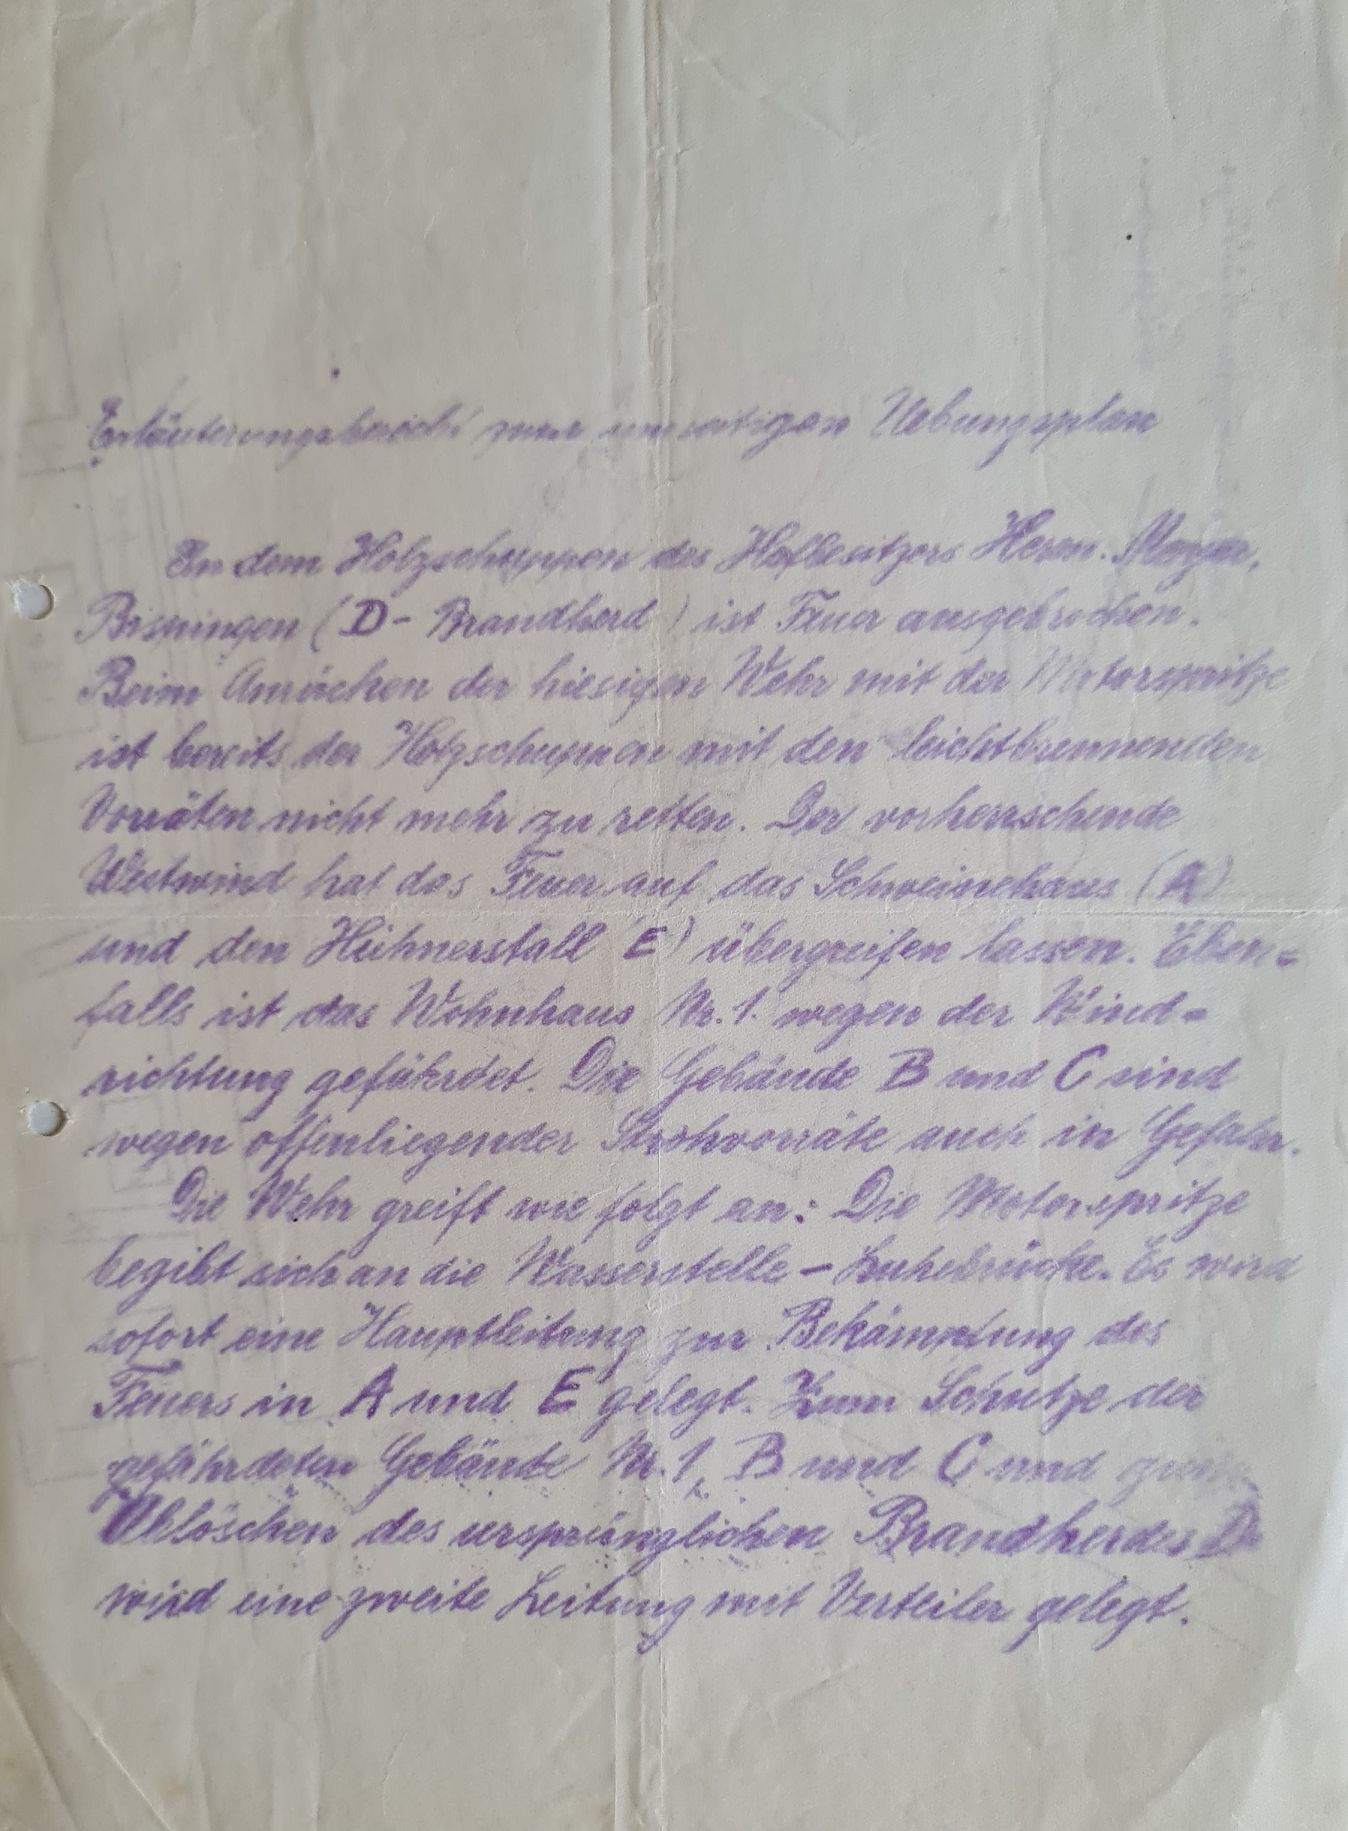 Erläuterungsbericht zum umseitigen Uebungsplan
In dem Holzschuppen des Hofbesitzers Herrn. Meyer,
Bispingen (D - Brandherd) ist Feuer ausgebrochen.
Beim Anrücken der hiesigen Wehr mit der Motorspritze
ist bereits der Holzschuppen mit den leichtbrennenden
Vorräten nicht mehr zu retten. Der vorherrschende
Westwind hat das Feuer auf das Schweinehaus (A)
und den Hühnerstall (E) übergreifen lassen. Eben=
falls ist das Wohnhaus Nr. 1. wegen der Wind=
richtung gefährdet. Die Gebäude B und C sind
wegen offenliegender Strohvorräte auch in Gefahr.
Die Wehr greift wie folgt an: Die Motorspritze
begibt sich an die Wasserstelle - Luhebrücke. Es wird
sofort eine Hauptleitung zur Bekämpfung des
Feuers in A und E gelegt. Zum Schutze der
gefährdeten Gebäude Nr. 1, B und C und zum
Ablöschen des ursprünglichen Brandherdes D
wird eine zweite Leitung mit Verteiler gelegt.